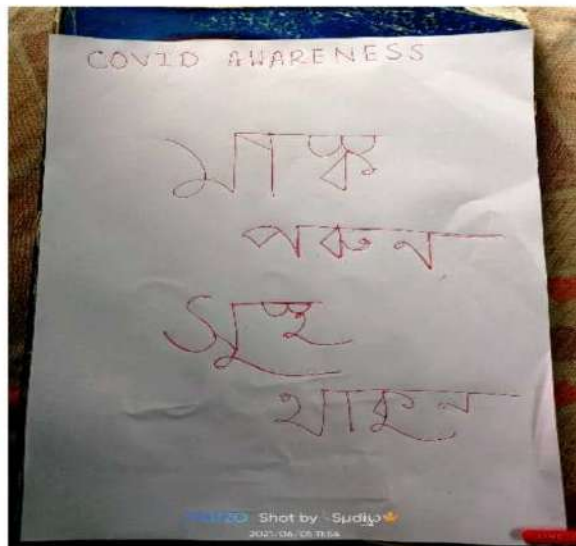 COVID AWARENESS
মাস্ক
পরুন
সুস্থ
থাকুন
Shot by Sudip
2021/06/05 11:54